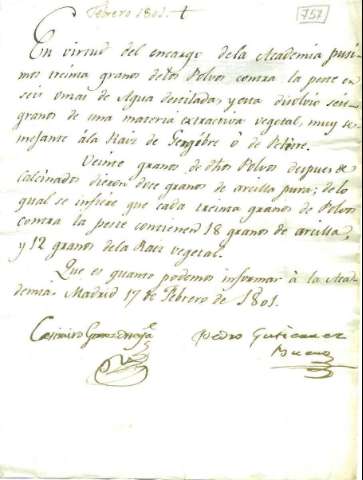 Febrero 1801. †
757
En virtud del encargo dela Academia pusi-
mos treinta granos delos Polvos contra la peste en
seis onzas de Agua destilada, y esta disolvio seis
granos de una materia extractiva vegetal, muy se-
mejante ála Raiz de Gengibre ó de Pelitre.
Veinte granos de dhos Polvos despues de
calcinados dieron doce granos de arcilla pura; delo
qual se infiere que cada treinta granos de Polvos
contra la peste contienen 18 granos de arcilla,
y 12 granos dela Raiz vegetal.
Que es quanto podemos informar à la Aca-
demia. Madrid 17 de Febrero de 1801.
Casimiro Gomez Ortega
Pedro Gutierrez
Bueno